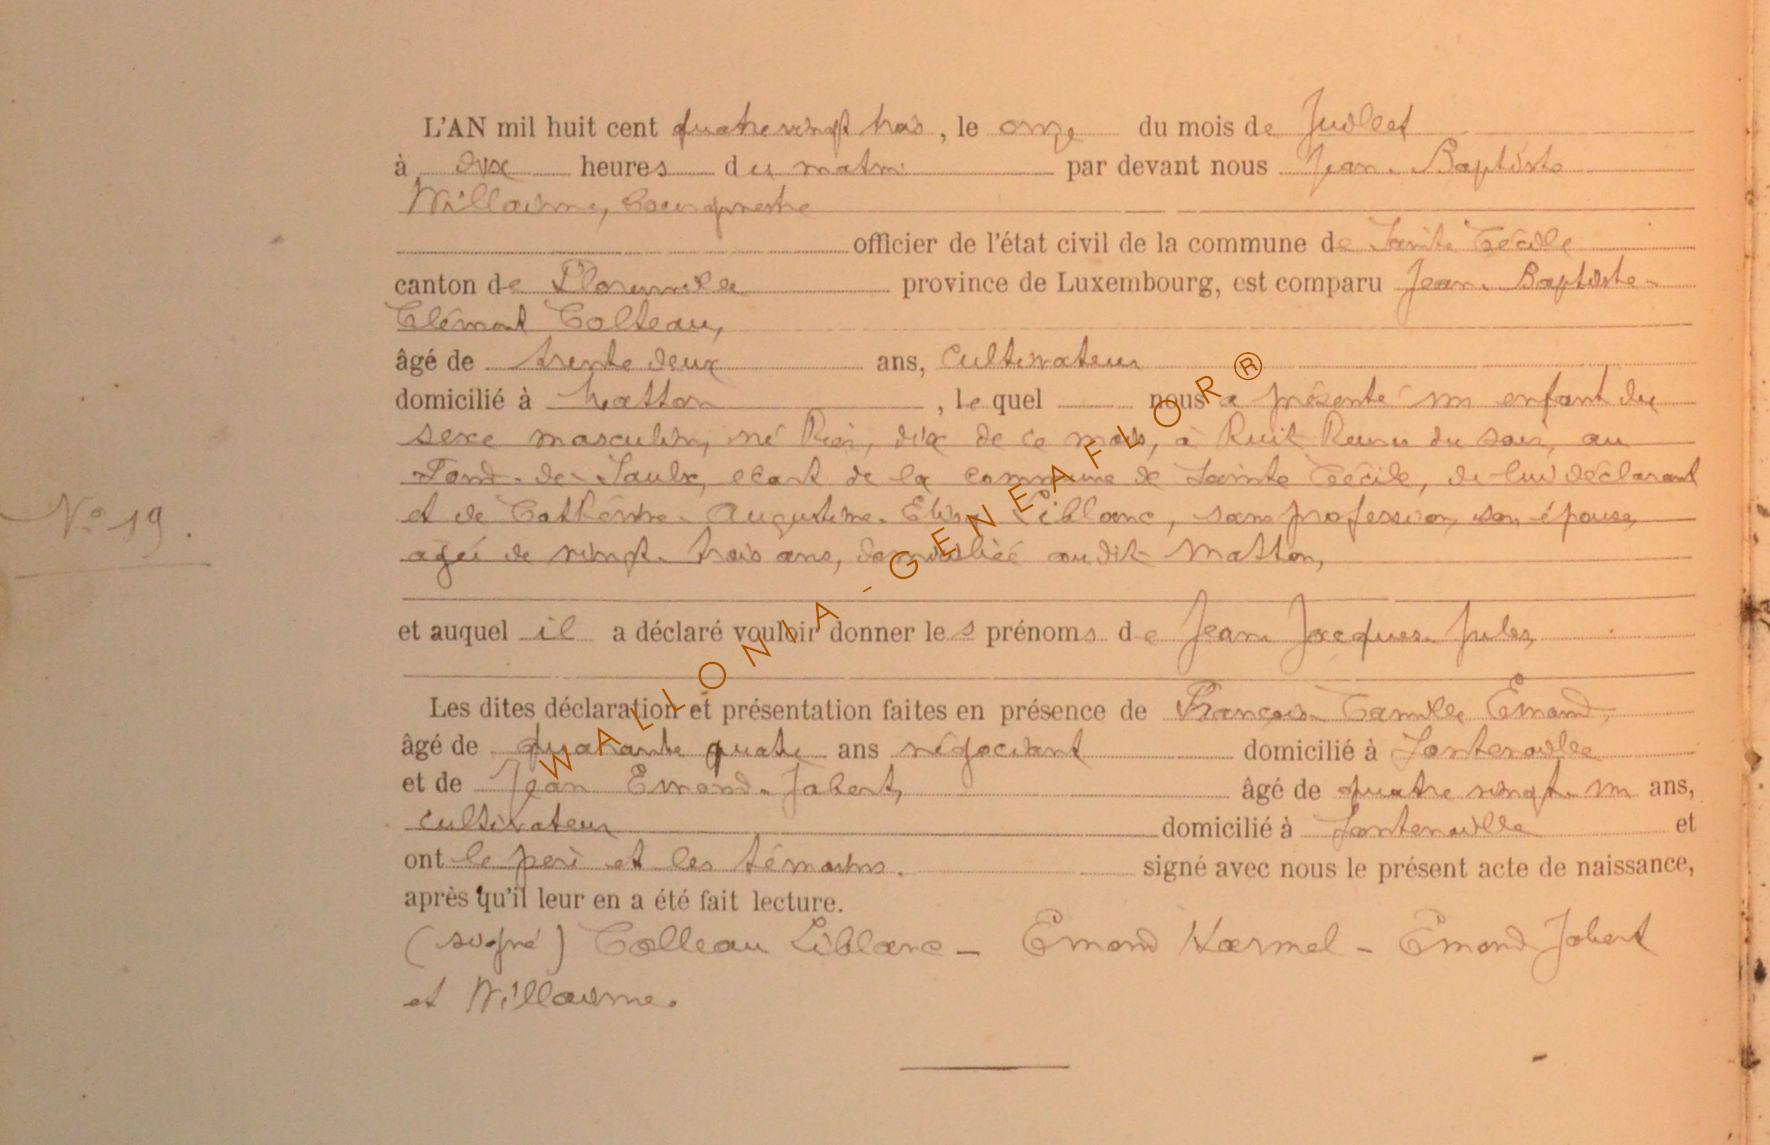 L'AN mil huit cent quatre vingt trois, le onze du mois de Juillet
à dix heures du matin par devant nous Jean-Baptiste
Willaime, bourgmestre
officier de l'état civil de la commune de Sainte Cécile
canton de Florenville province de Luxembourg, est comparu Jean-Baptiste-
Clément Colleau,
âgé de trente deux ans, cultivateur
domicilié à Matton, lequel nous a présenté un enfant du
sexe masculin, né hier, dix de ce mois, à huit heures du soir, au
Fond-de-Saulx, écart de la commune de Sainte Cécile, de lui déclarant
N° 19.
et de Cathérine-Augustine-Elise Liblanc, sans profession, son épouse,
agée de vingt-trois ans, domiciliée audit Matton,
et auquel il a déclaré vouloir donner les prénoms de Jean-Jacques-Jules,
Les dites déclaration et présentation faites en présence de François-Camille Emond,
âgé de quarante quatre ans négociant domicilié à Fontenoille
et de Jean Emond-Jobert, âgé de quatre vingt-un ans,
cultivateur domicilié à Fontenoille et
ont le père et les témoins. signé avec nous le présent acte de naissance,
après qu'il leur en a été fait lecture.
(signé) Colleau Liblanc - Emond - Emond Jobert
et Willaime.
WALLONIA-GENEAFLOR®